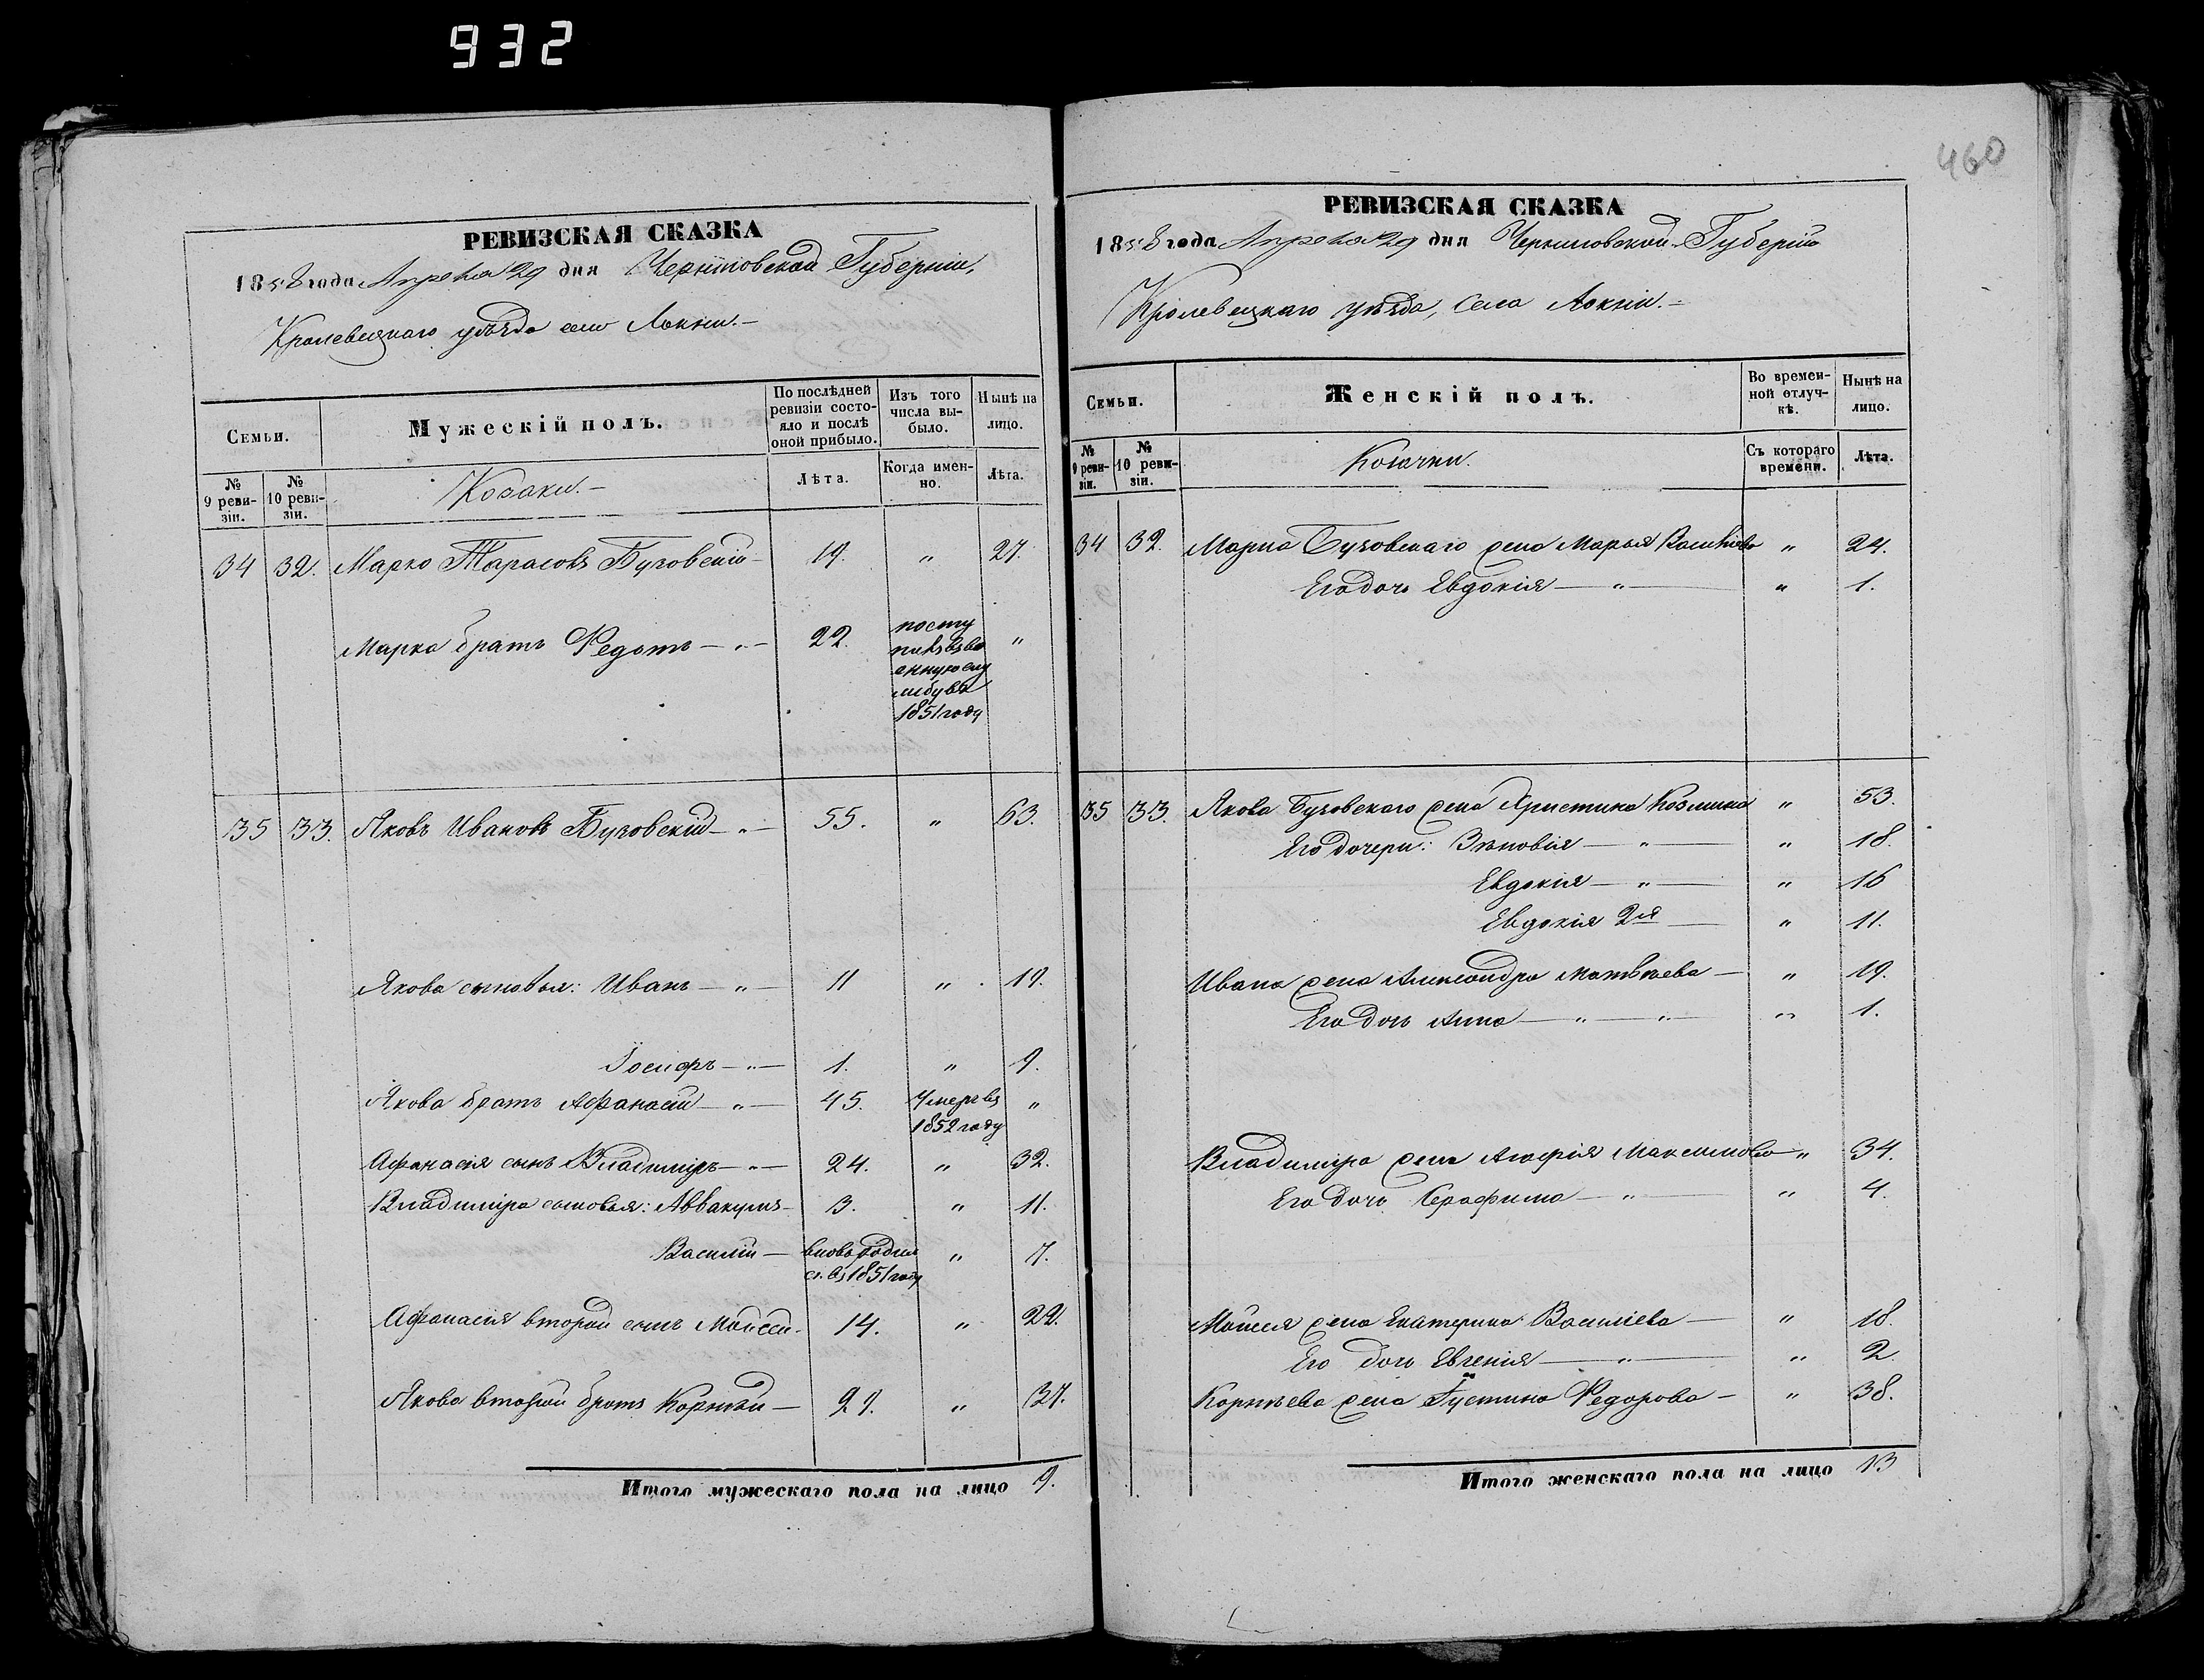 932
460
РЕВИЗСКАЯ СКАЗКА
1858 года Апреля 29 дня Черниговской Губерніи,
Кролевецкаго уѣзда села Локни.-
Семьи.
Мужескій полъ.
По послѣдней ревизіи состояло и послѣ оной прибыло.
Изъ того числа выбыло.
Нынѣ на лицо.
№ 9 ревизіи.
№ 10 ревизіи.
Козаки.-
Лѣта.
Когда именно.
Лѣта.
34 32. Марко Тарасовъ Бучовский 19. " 27.
Марка братъ Федотъ - " - 22. посту
пилъ въ во
енную слу
жбу въ
1851 году "
35 33. Яковъ Ивановъ Бучовскій - " - 55. " 63.
Якова сыновья: Иванъ - " - 11 " 19.
Іосифъ - " - 1. " 9.
Якова братъ Афанасій - " - 45. Умеръ въ
1852 году "
Афанасія сынъ Владиміръ - " - 24. " 32.
Владиміра сыновья: Аввакумъ - 3. " 11.
Василій - вновь родил
ся въ 1851 году " 7.
Афанасія второй сынъ Моисей - 14. " 22.
Якова второй братъ Корнѣй - 29. " 37.
Итого мужескаго пола на лицо 9.
РЕВИЗСКАЯ СКАЗКА
1858 года Апреля 29 дня Черниговской Губерніи
Кролевецкаго уѣзда, села Локни.-
Семьи.
Женскій полъ.
Во временной отлучкѣ.
Нынѣ на лицо.
№ 9 ревизіи.
№ 10 ревизіи.
Козачки.
Съ котораго времени.
Лѣта.
34 32. Марка Бучовскаго жена Марья " 24.
Его дочь Евдокія - " - " 1.
35 33. Якова Бучовскаго жена Христина Козмина " 53.
Его дочери: Зѣновія - " - " 18.
Евдокія - " - " 16
Евдокія 2я - " 11.
Ивана жена Александра Матвѣева - " 19.
Его дочь Анна - " - " - " 1.
Владиміра жена Агафія Максимова " 34.
Его дочь Серафима - " - " 4.
Моисея жена Екатерина Василіева - " 18.
Его дочь Евгенія - " - " 2.
Корнѣева жена Іустина Федорова - " 38.
Итого женскаго пола на лицо 13